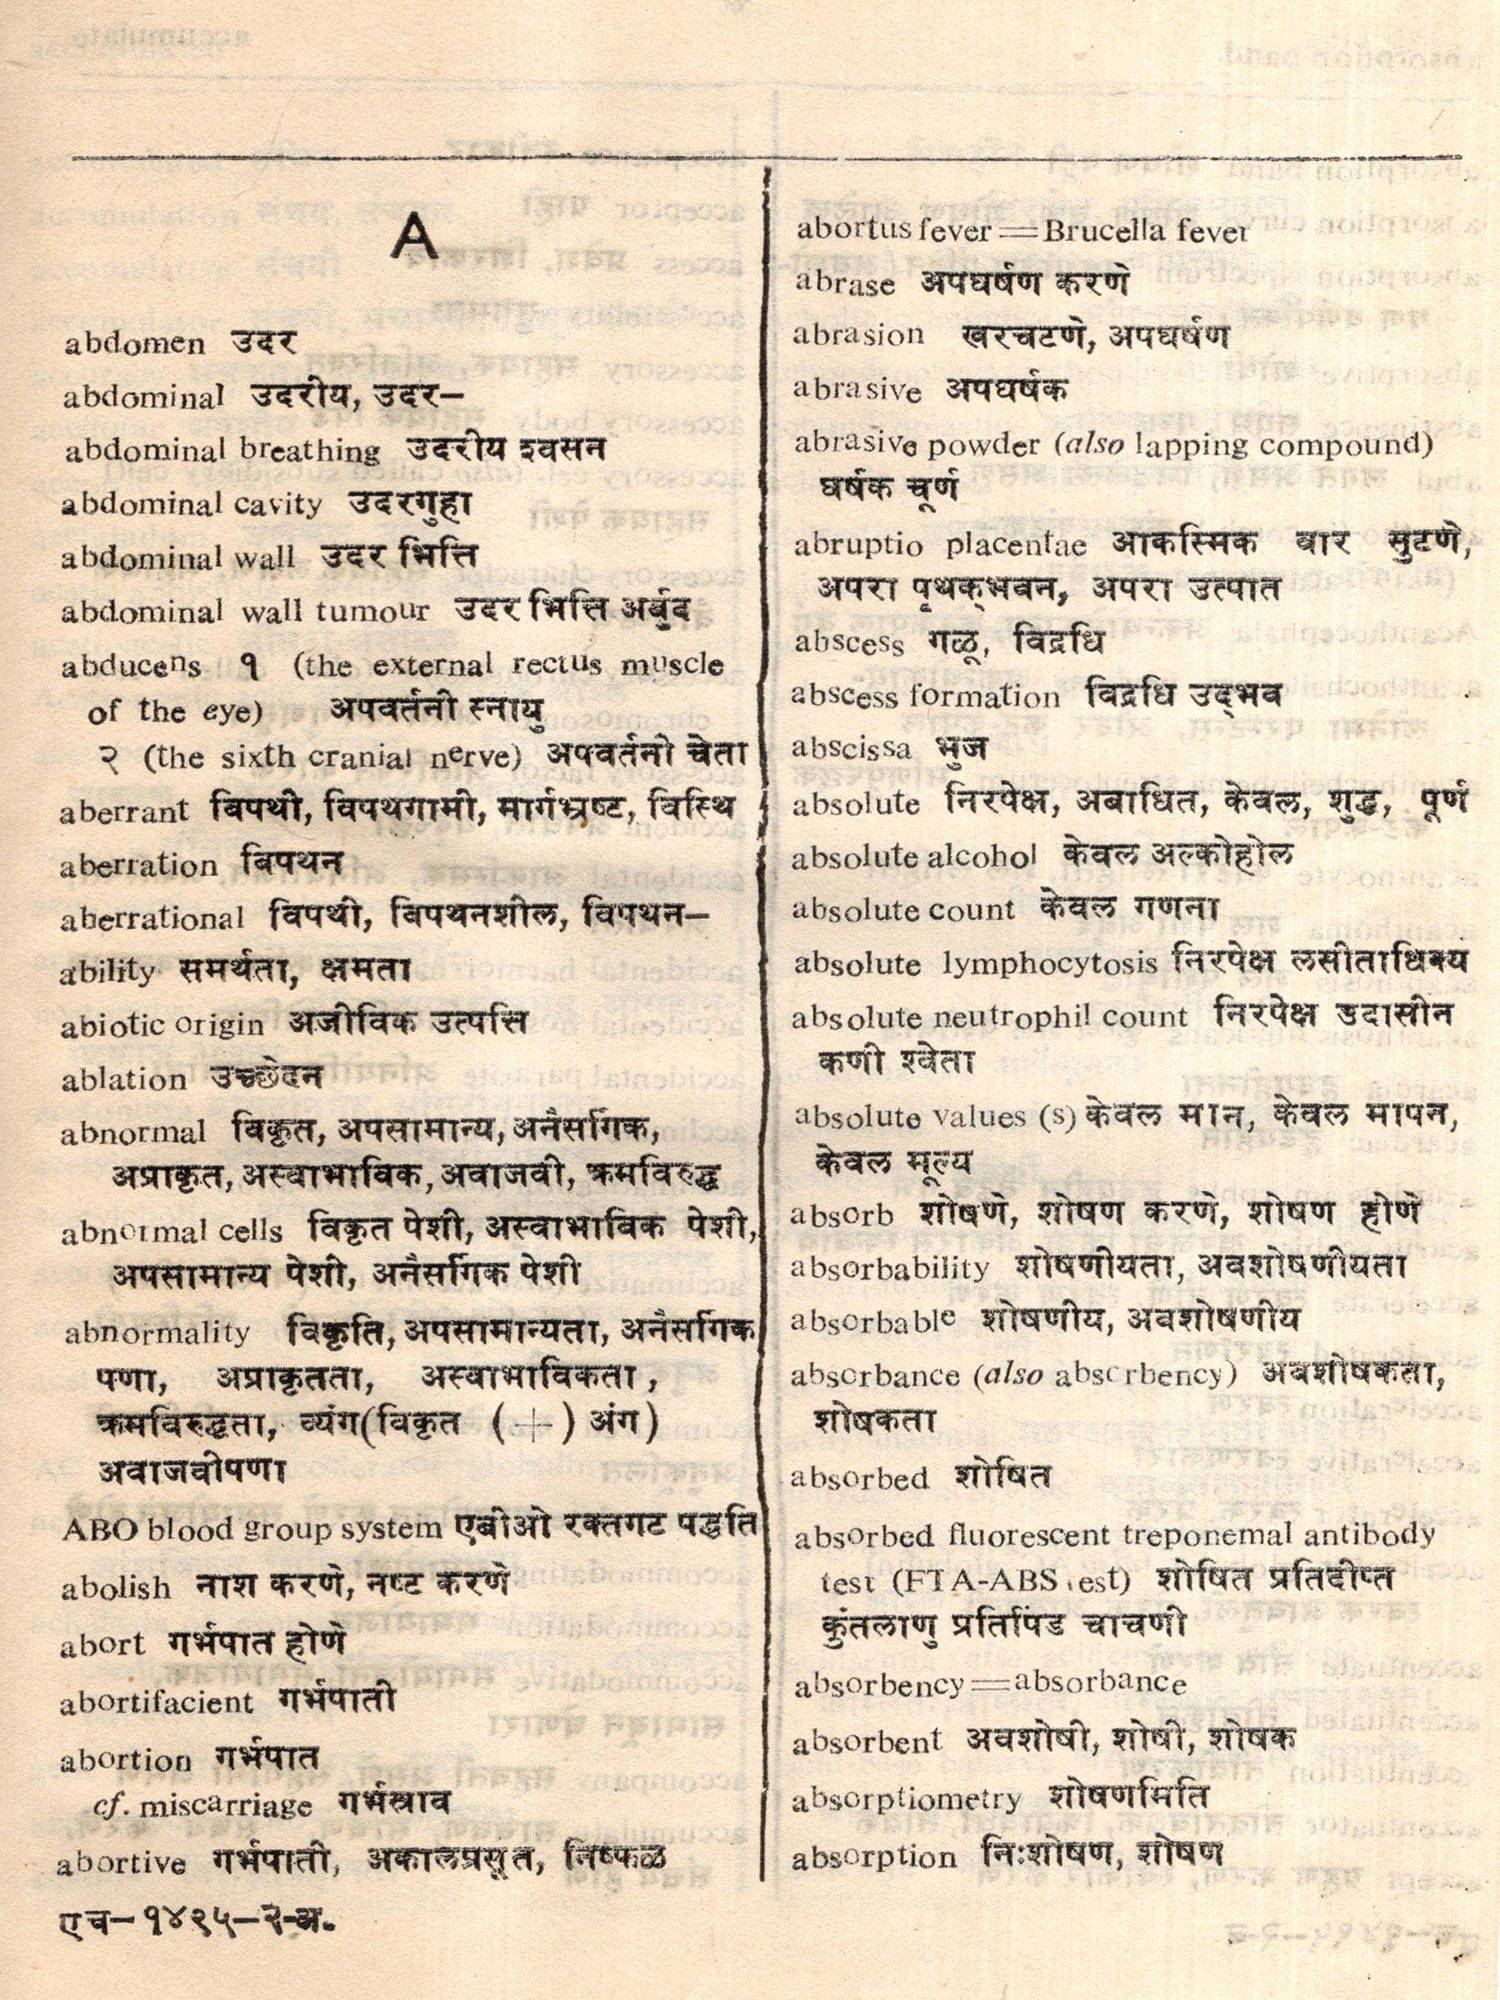 A
abdomen उदर
abdominal उदरीय, उदर–
abdominal breathing उदरीय श्वसन
abdominal cavity उदरगुहा
abdominal wall उदर भित्ति
abdominal wall tumour उदर भित्ति अर्बुद
abducens १ (the external rectus muscle
of the eye) अपवर्तनी स्नायु
२ (the sixth cranial nerve) अपवर्तनी चेता
aberrant विपथी, विपथगामी, मार्गभ्रष्ट, विस्थि
aberration विपथन
aberrational विपथी, विपथनशील, विपथन–
ability समर्थता, क्षमता
abiotic origin अजीविक उत्पत्ति
ablation उच्छेदन
abnormal विकृत, अपसामान्य, अनैसर्गिक,
अप्राकृत, अस्वाभाविक, अवाजवी, क्रमविरुद्ध
abnormal cells विकृत पेशी, अस्वाभाविक पेशी,
अपसामान्य पेशी, अनैसर्गिक पेशी
abnormality विकृति, अपसामान्यता, अनैसर्गिक
पणा, अप्राकृतता, अस्वाभाविकता,
क्रमविरुद्धता, व्यंग(विकृत (+) अंग)
अवाजवीपणा
ABO blood group system एबीओ रक्तगट पद्धति
abolish नाश करणे, नष्ट करणे
abort गर्भपात होणे
abortifacient गर्भपाती
abortion गर्भपात
cf. miscarriage गर्भस्राव
abortive गर्भपाती, अकालप्रसूत, निष्फळ
एच–१४९५–२-अ.
abortus fever=Brucella fever
abrase अपघर्षण करणे
abrasion खरचटणे, अपघर्षण
abrasive अपघर्षक
abrasive powder (also lapping compound)
घर्षक चूर्ण
abruptio placentae आकस्मिक वार सुटणे,
अपरा पृथक्भवन, अपरा उत्पात
abscess गळू, विद्रधि
abscess formation विद्रधि उद्भव
abscissa भुज
absolute निरपेक्ष, अबाधित, केवल, शुद्ध, पूर्ण
absolute alcohol केवल अल्कोहोल
absolute count केवल गणना
absolute lymphocytosis निरपेक्ष लसीताधिक्य
absolute neutrophil count निरपेक्ष उदासीन
कणी श्वेता
absolute values (s) केवल मान, केवल मापन,
केवल मूल्य
absorb शोषणे, शोषण करणे, शोषण होणे
absorbability शोषणीयता, अवशोषणीयता
absorbable शोषणीय, अवशोषणीय
absorbance (also absorbency) अवशोषकता,
शोषकता
absorbed शोषित
absorbed fluorescent treponemal antibody
test (FTA-ABS test) शोषित प्रतिदीप्त
कुंतलाणु प्रतिपिंड चाचणी
absorbency=absorbance
absorbent अवशोषी, शोषी, शोषक
absorptiometry शोषणमिति
absorption निःशोषण, शोषण